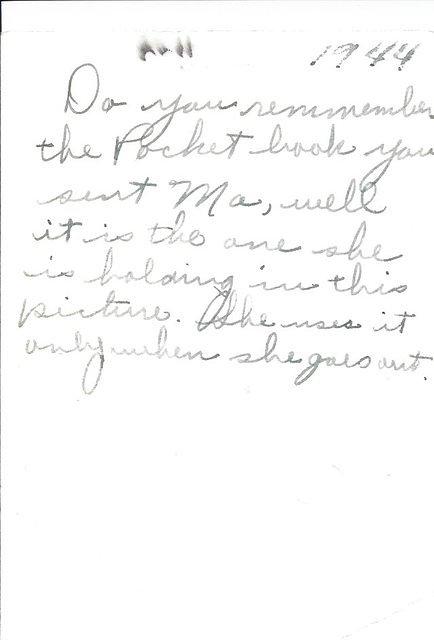 1944
Do you remmember
the Pocket book you
sent Ma, well
it is the one she
is holding in this
picture. She uses it
only when she goes out.